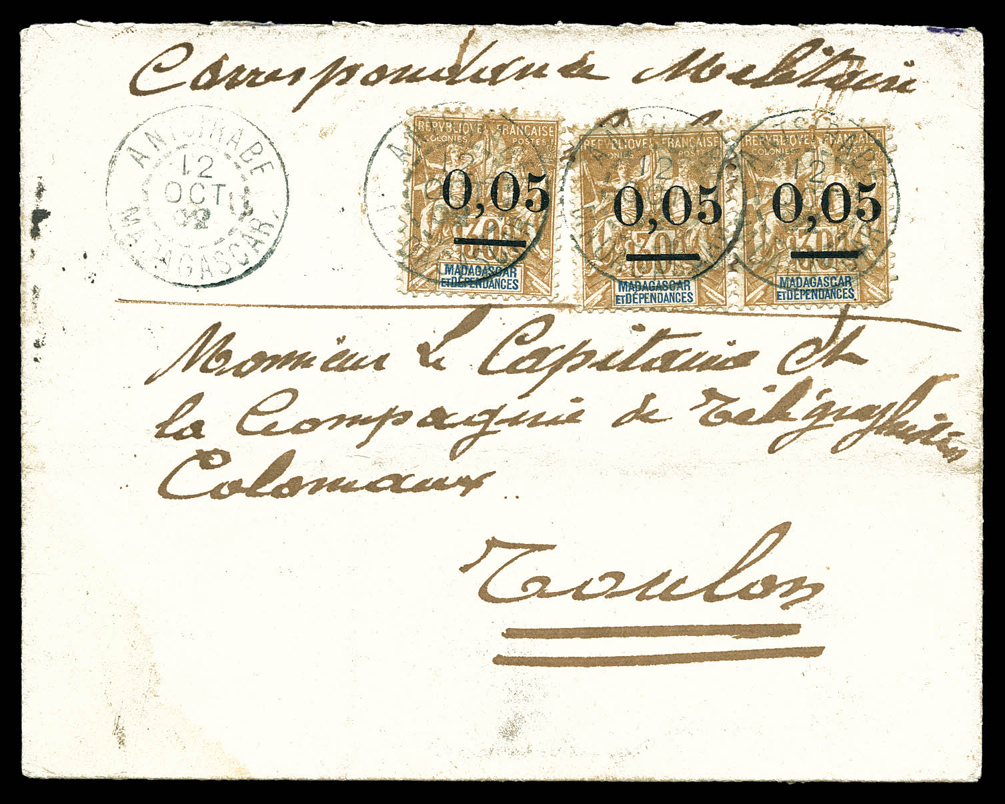 Correspondance Melitaire
ANTSIRABE
12
OCT
02
MADAGASCAR
REPVBLIQVE FRANÇAISE
COLONIES POSTES
0,05
30
MADAGASCAR
ET DÉPENDANCES
REPVBLIQVE FRANÇAISE
COLONIES POSTES
0,05
30
MADAGASCAR
ET DÉPENDANCES
REPVBLIQVE FRANÇAISE
COLONIES POSTES
0,05
30
MADAGASCAR
ET DÉPENDANCES
Monsieur Le Capitaine Ct
la Compagnie de Télégraphistes
Coloniaux
Toulon